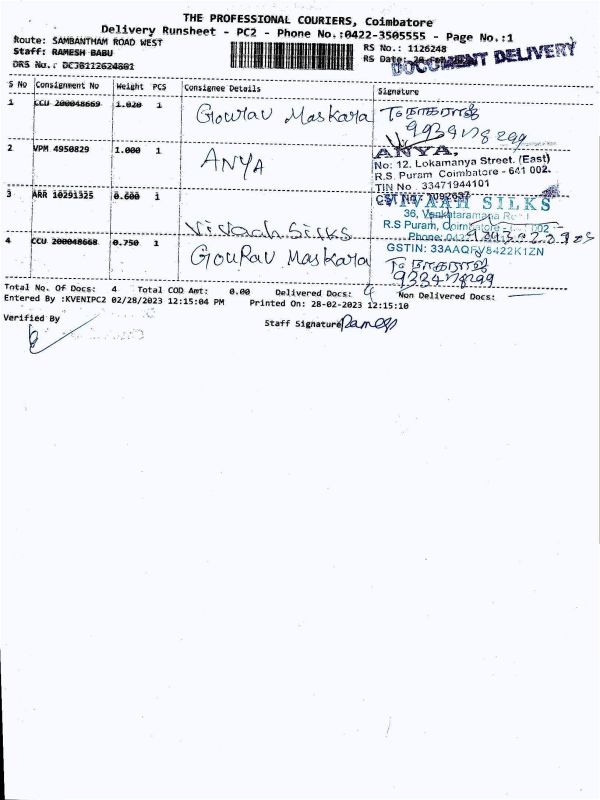 THE PROFESSIONAL COURIERS, Coimbatore
Delivery Runsheet - PC2 - Phone No.:0422-3505555 - Page No.:1
Route: SAMBANTHAM ROAD WEST
RS No.: 1126248
Staff: RAMESH BABU
RS Date:
DOCUMENT DELIVERY
DRS No.: DCJB112624801
S No Consignment No Weight PCS Consignee Details Signature
1 CCU 200048669 1.020 1 Gourav Maskara
2 VPM 4950829 1.000 1 ANYA
ANYA,
No: 12, Lokamanya Street, (East)
R.S. Puram Coimbatore - 641 002.
TIN No 33471944101
3 ARR 10291325 0.600 1 Vivaah Silks
VIVAAH SILKS
36, Venkataramana
R.S Puram, Coimbatore 002
Phone:
GSTIN: 33AAQFV8422K1ZN
4 CCU 200048668 0.750 1 GouRav Maskara
Total No. Of Docs: 4 Total COD Amt: 0.00 Delivered Docs: 4 Non Delivered Docs:
Entered By :KVENIPC2 02/28/2023 12:15:04 PM Printed On: 28-02-2023 12:15:10
Verified By
Staff Signature Ramesh